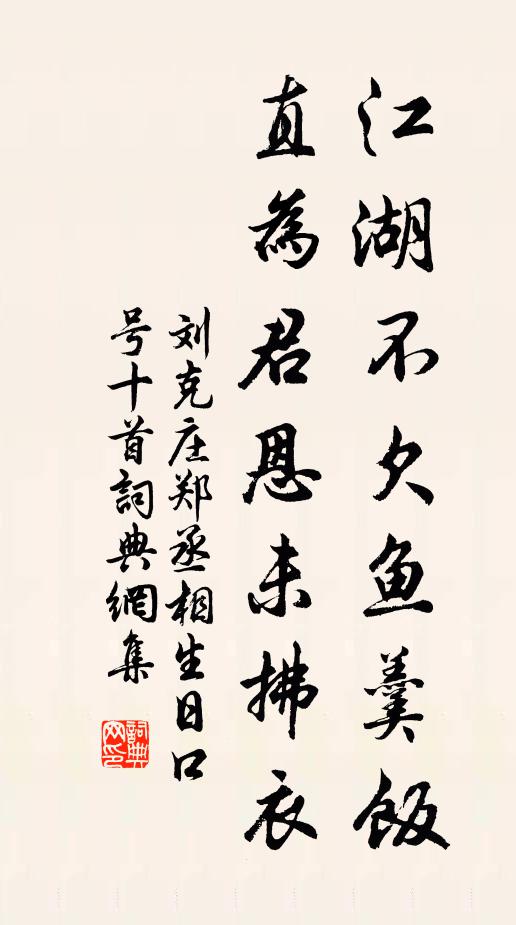 江湖不欠鱼羹飯
直為君恩未拂衣
刘克庄郑丞相生日口
号十首詞典網集
詞典
网印